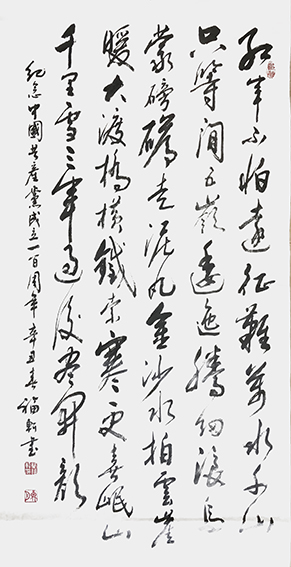 红军不怕遠征難萬水千山
只等闲五嶺逶迤腾细浪乌
蒙磅礴走泥丸金沙水拍雲崖
暖大渡橋横鐵索寒更喜岷山
千里雪三军過後尽開顏
纪念中國共產黨成立一百周年 辛丑春 福書